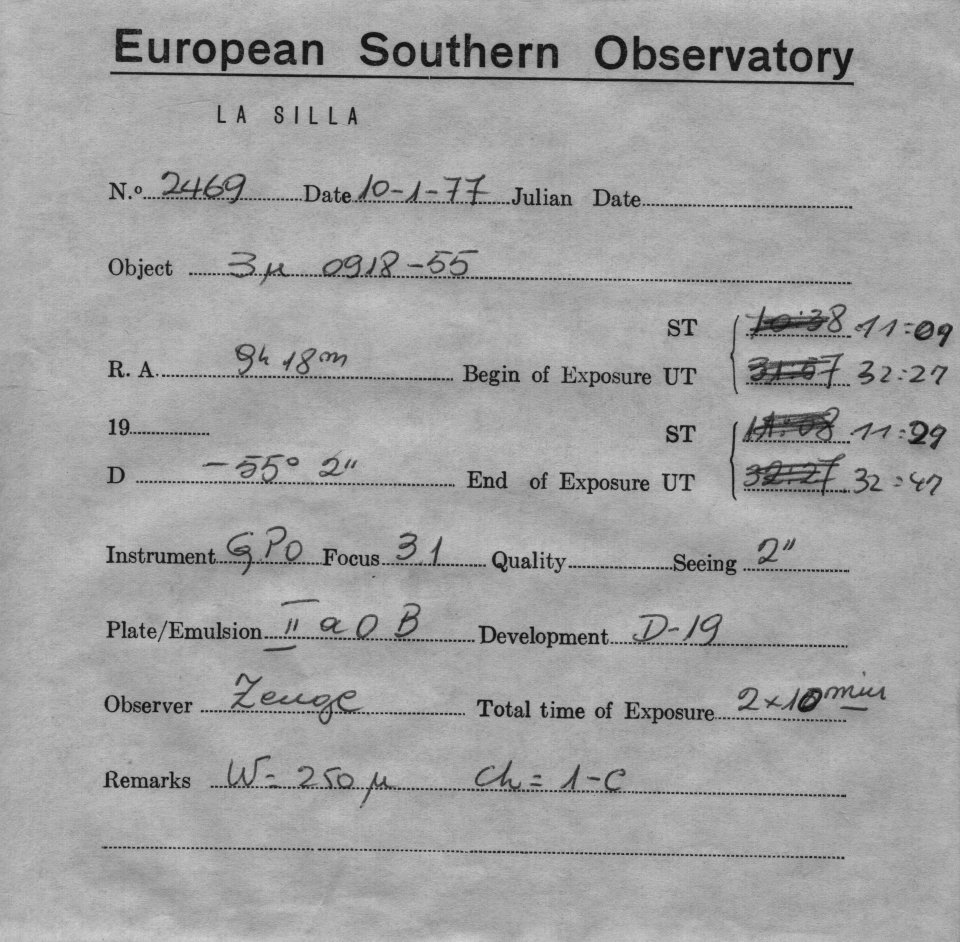 European Southern Observatory
LA SILLA
N.º 2469 Date 10-1-77 Julian Date
Object 3µ 0918-55
ST 10:38 11:09
R. A. 9h 18m Begin of Exposure UT 31:57 32:27
19 ST 11:08 11:29
D -55° 2" End of Exposure UT 32:27 32:47
Instrument GPO Focus 31 Quality Seeing 2"
Plate/Emulsion II a O B Development D-19
Observer Total time of Exposure 2×10 min
Remarks W= 250 µ Ch = 1-C